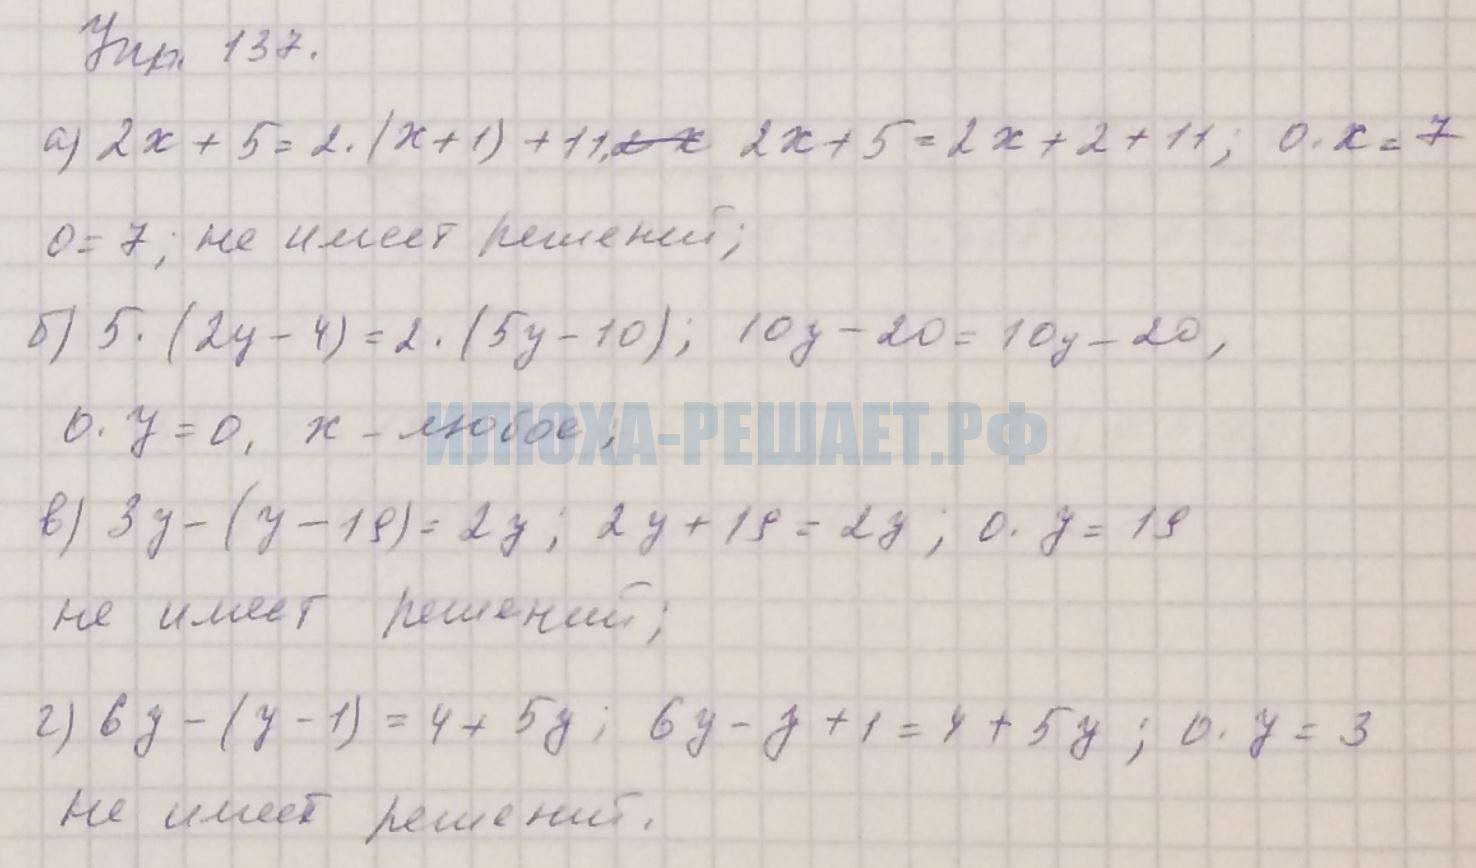 Упр. 137.
а) 2x + 5 = 2 · (x + 1) + 11, 2x + 5 = 2x + 2 + 11; 0 · x = 7
0 = 7; не имеет решений;
б) 5 · (2y - 4) = 2 · (5y - 10); 10y - 20 = 10y - 20,
0 · y = 0, x - любое;
ИЛЮХА-РЕШАЕТ.РФ
в) 3y - (y - 19) = 2y; 2y + 19 = 2y; 0 · y = 19
не имеет решений;
г) 6y - (y - 1) = 4 + 5y; 6y - y + 1 = 4 + 5y; 0 · y = 3
не имеет решений.